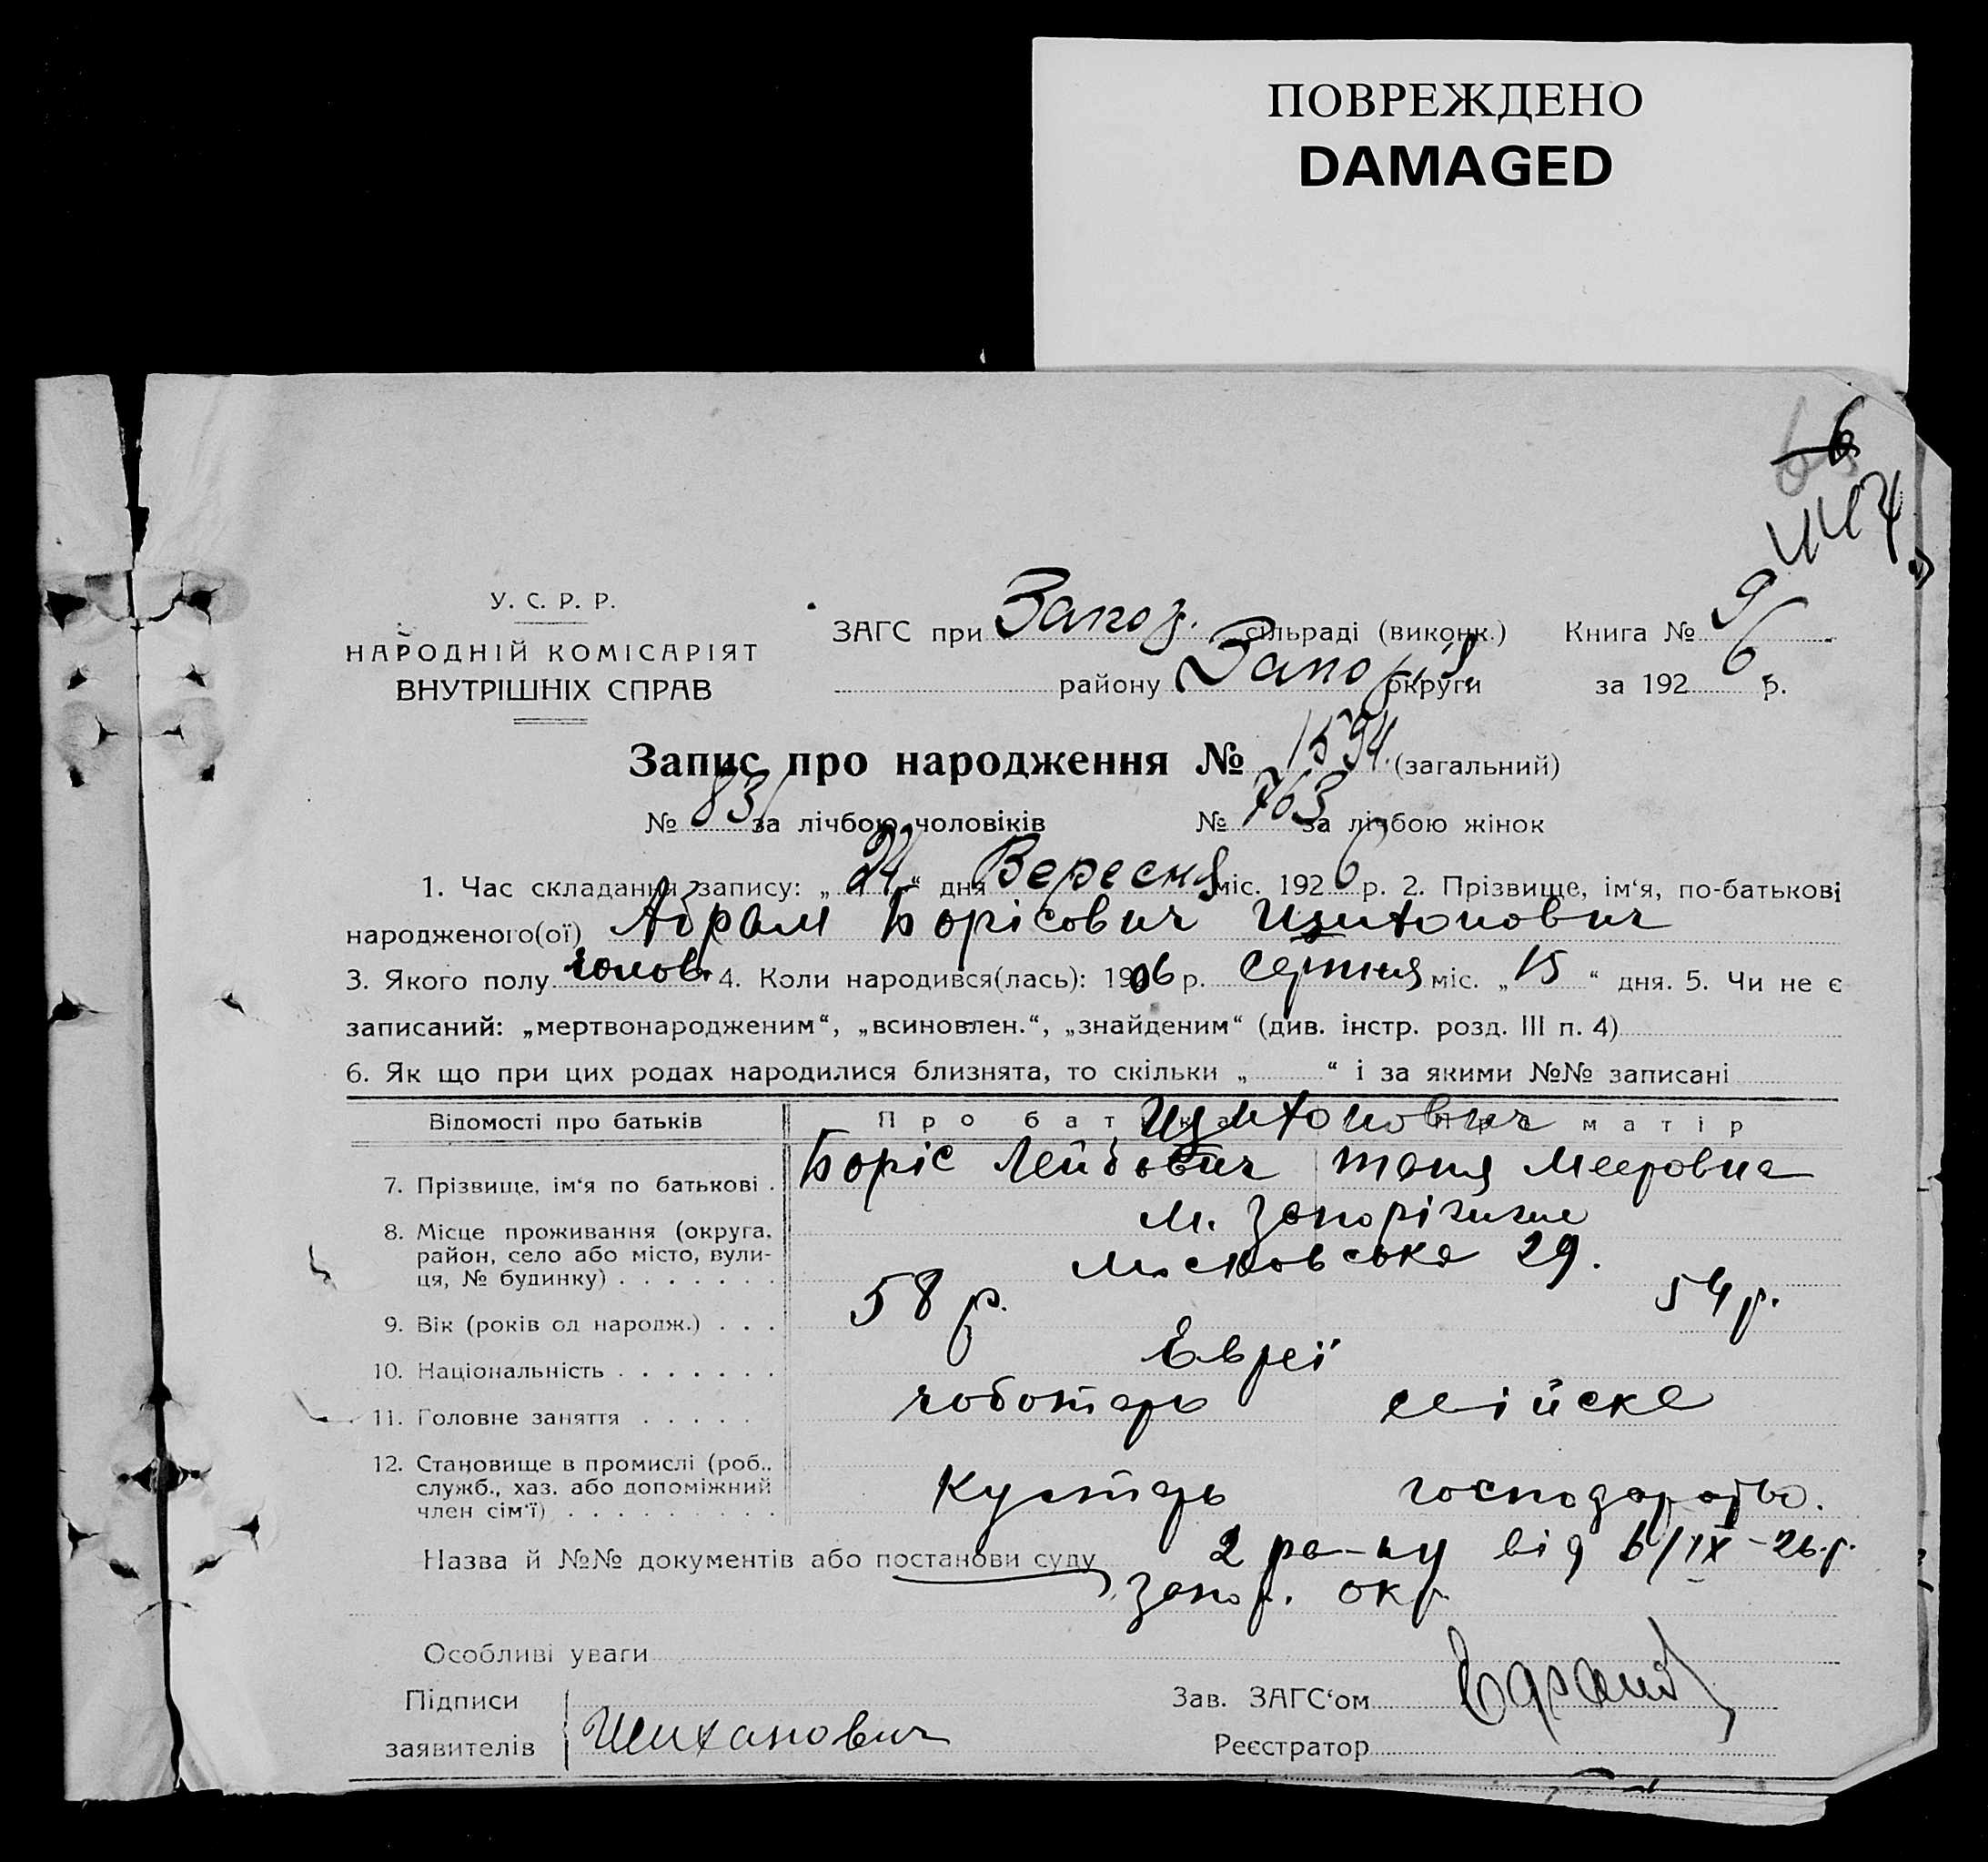 ПОВРЕЖДЕНО
DAMAGED
6
447
У. С. Р. Р.
НАРОДНІЙ КОМІСАРІЯТ
ВНУТРІШНІХ СПРАВ
ЗАГС при Запоз. сільраді (виконк.) Книга № 9
району Запоріз. округи за 1926 р.
Запис про народження № 1594. (загальний)
№ 831 за лічбою чоловіків № 763 за лічбою жінок
1. Час складання запису: „24“ дня Вересня міс. 1926 р. 2. Прізвище, ім‘я, по-батькові
народженого(ої) Абрам Борісович
3. Якого полу чолов. 4. Коли народився(лась): 1906 р. серпня міс. „15“ дня. 5. Чи не є
записаний: „мертвонародженим“, „всиновлен.“, „знайденим“ (див. інстр. розд. III п. 4)
6. Як що при цих родах народилися близнята, то скільки „ “ і за якими №№ записані
Відомості про батьків Про батька матір
7. Прізвище, ім‘я по батькові . Боріс Лейбович Таня Мееровна
8. Місце проживання (округа, район, село або місто, вулиця, № будинку) . . . . . . . м. Запоріжжя
Московська 29.
9. Вік (років од народж.) . . . 58 р. 54 р.
10. Національність . . . . . . . Евреї
11. Головне заняття . . . . . чоботарь сільске
12. Становище в промислі (роб., служб., хаз. або допоміжний член сім‘ї) . . . . . . . . . Кустарь господарство.
Назва й №№ документів або постанови суду 2 ра-ну від 6/IX-26 р.
Запор. окр.
Особливі уваги
Підписи Зав. ЗАГС‘ом
заявителів Шиханович Реєстратор